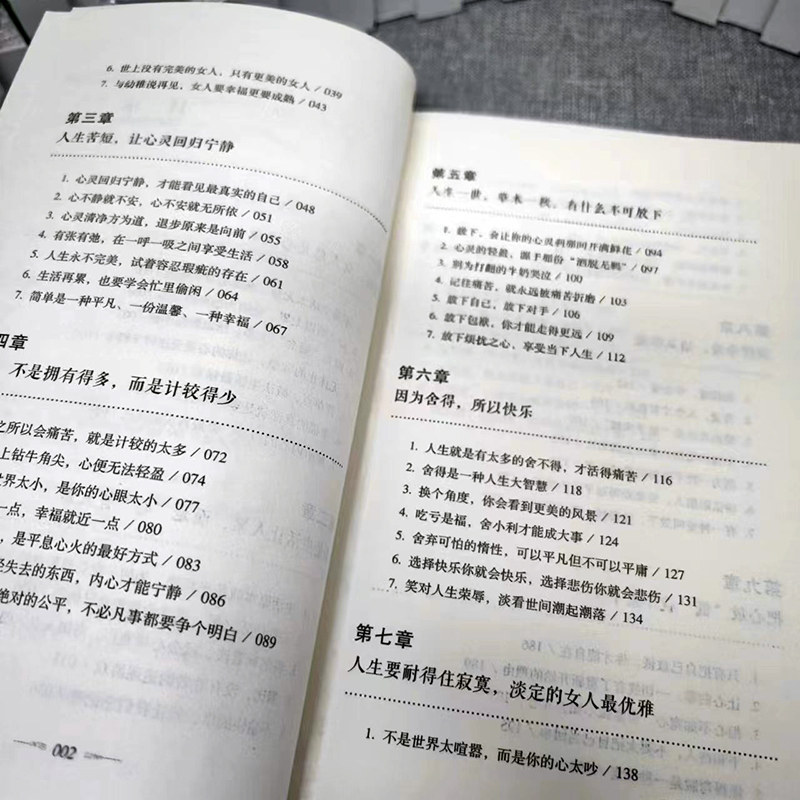 6. 世上没有完美的女人，只有更美的女人 / 039
7. 与幼稚说再见，女人要幸福更要成熟 / 043
第三章
人生苦短，让心灵回归宁静
1. 心灵回归宁静，才能看见最真实的自己 / 048
2. 心不静就不安，心不安就无所依 / 051
3. 心灵清净方为道，退步原来是向前 / 055
4. 有张有弛，在一呼一吸之间享受生活 / 058
5. 人生永不完美，试着容忍瑕疵的存在 / 061
6. 生活再累，也要学会忙里偷闲 / 064
7. 简单是一种平凡、一份温馨、一种幸福 / 067
四章
不是拥有得多，而是计较得少
之所以会痛苦，就是计较的太多 / 072
上钻牛角尖，心便无法轻盈 / 074
世界太小，是你的心眼太小 / 077
一点，幸福就近一点 / 080
，是平息心火的最好方式 / 083
失去的东西，内心才能宁静 / 086
绝对的公平，不必凡事都要争个明白 / 089
002
第五章
人生一世，草木一秋，有什么不可放下
1. 放下，会让你的心灵刹那间开满鲜花 / 094
2. 心灵的轻盈，源于那份“洒脱无羁” / 097
3. 别为打翻的牛奶哭泣 / 100
4. 记住痛苦，就永远被痛苦折磨 / 103
5. 放下自己，放下对手 / 106
6. 放下包袱，你才能走得更远 / 109
7. 放下烦扰之心，享受当下人生 / 112
第六章
因为舍得，所以快乐
1. 人生就是有太多的舍不得，才活得痛苦 / 116
2. 舍得是一种人生大智慧 / 118
3. 换个角度，你会看到更美的风景 / 121
4. 吃亏是福，舍小利才能成大事 / 124
5. 舍弃可怕的惰性，可以平凡但不可以平庸 / 127
6. 选择快乐你就会快乐，选择悲伤你就会悲伤 / 131
7. 笑对人生荣辱，淡看世间潮起潮落 / 134
第七章
人生要耐得住寂寞，淡定的女人最优雅
1. 不是世界太喧嚣，而是你的心太吵 / 138